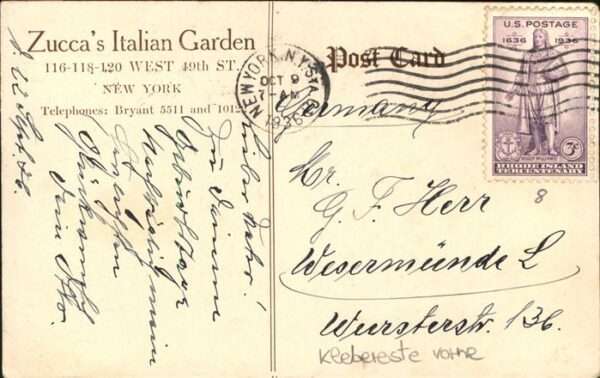 Zucca's Italian Garden
116-118-120 WEST 49th ST.
NEW YORK
Telephones: Bryant 5511 and 101
Post Card
NEW YORK, N.Y.
OCT 9
7-AM
1936
U.S. POSTAGE
1636 1936
3¢
ROGER WILLIAMS
RHODE ISLAND
TERCENTENARY
8
Germany
Mr.
G. F. Herr
Wesermünde L
Wursterstr. 136.
Klebereste vorne
Lieber Vater!
Zu Deinem
Geburtstage
nachträglich mein
Glückwunsch
Dein